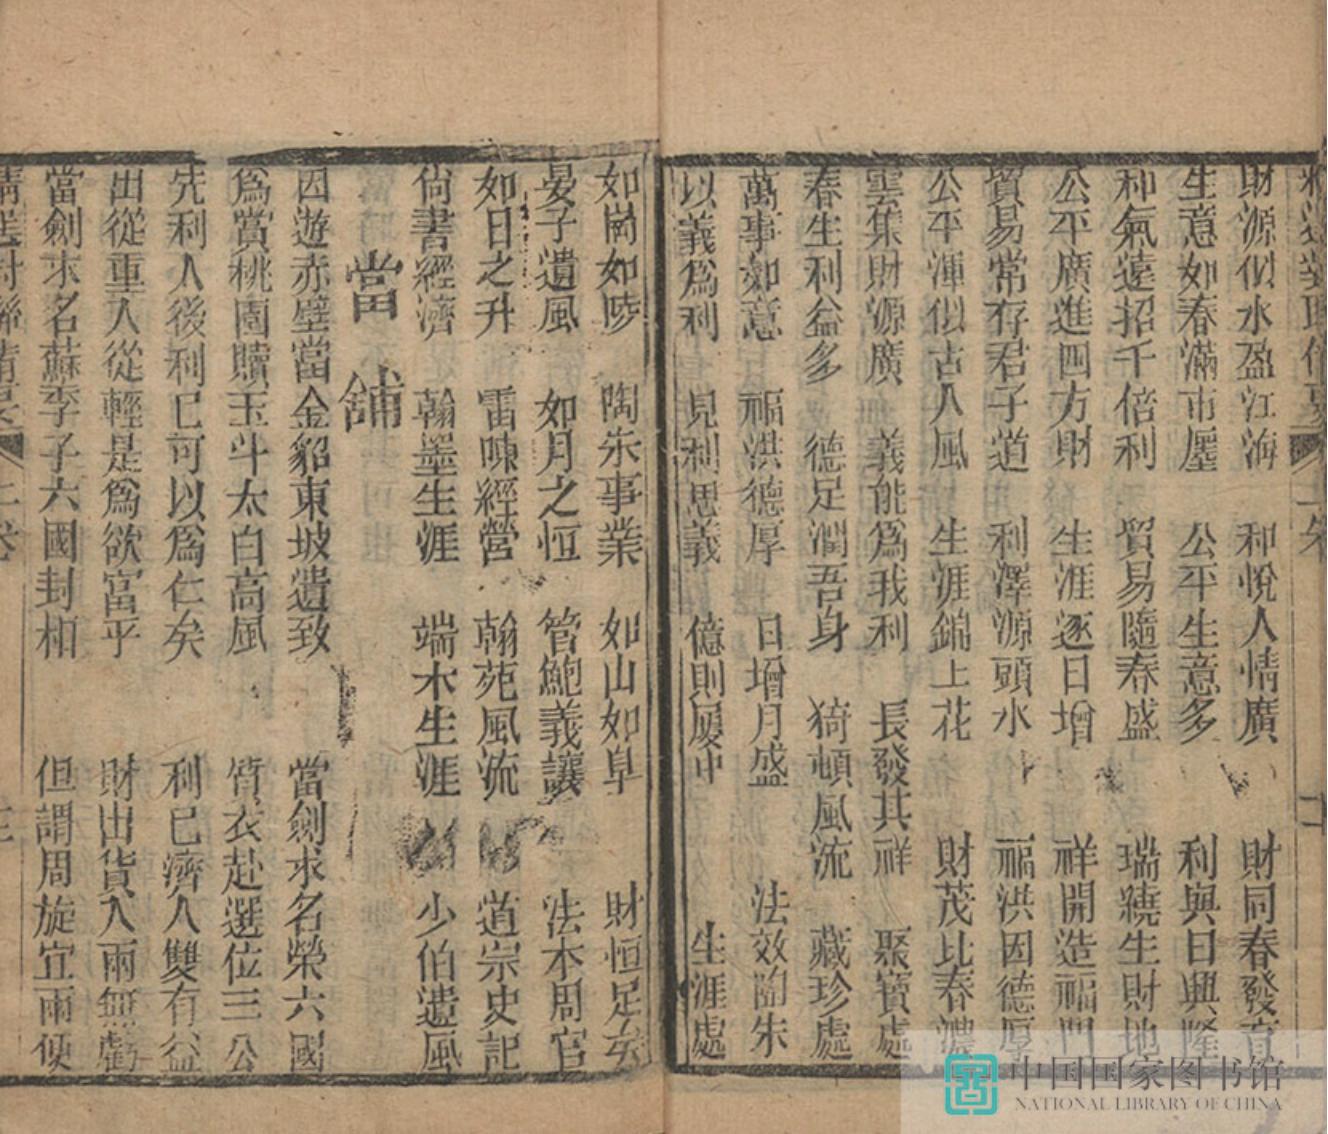 財源似水盈江海　和悅人情廣　財同春發育
生意如春滿市廛　公平生意多　利與日興隆
和氣遠招千倍利　貿易隨春盛　瑞繞生財地
公平廣進四方財　生涯逐日增　祥開造福門
貿易常存君子道　利澤源頭水　福洪因德厚
公平渾似古人風　生涯錦上花　財茂比春濃
雲集財源廣　義能為我利　長發其祥　聚寶處
春生利益多　德足潤吾身　猗頓風流　藏珍處
萬事如意　福洪德厚　日增月盛　法效陶朱
以義為利　見利思義　億則屢中　生涯處
如崗如陵　陶朱事業　如山如阜　財恒足矣
晏子遺風　如月之恒　管鮑義讓　法本周官
如日之升　雷陳經營　翰苑風流　道宗史記
尚書經濟　翰墨生涯　端木生涯　少伯遺風
當舖
因遊赤壁當金貂東坡遺致　當劍求名榮六國
為賞桃園贖玉斗太白高風　質衣赴選位三公
先利人後利已可以為仁矣　利已濟人雙有益
出從重入從輕是為欲富乎　財出貨入兩無虧
當劍求名蘇季子六國封相　但謂周旋宜兩便
中国国家图书馆
NATIONAL LIBRARY OF CHINA